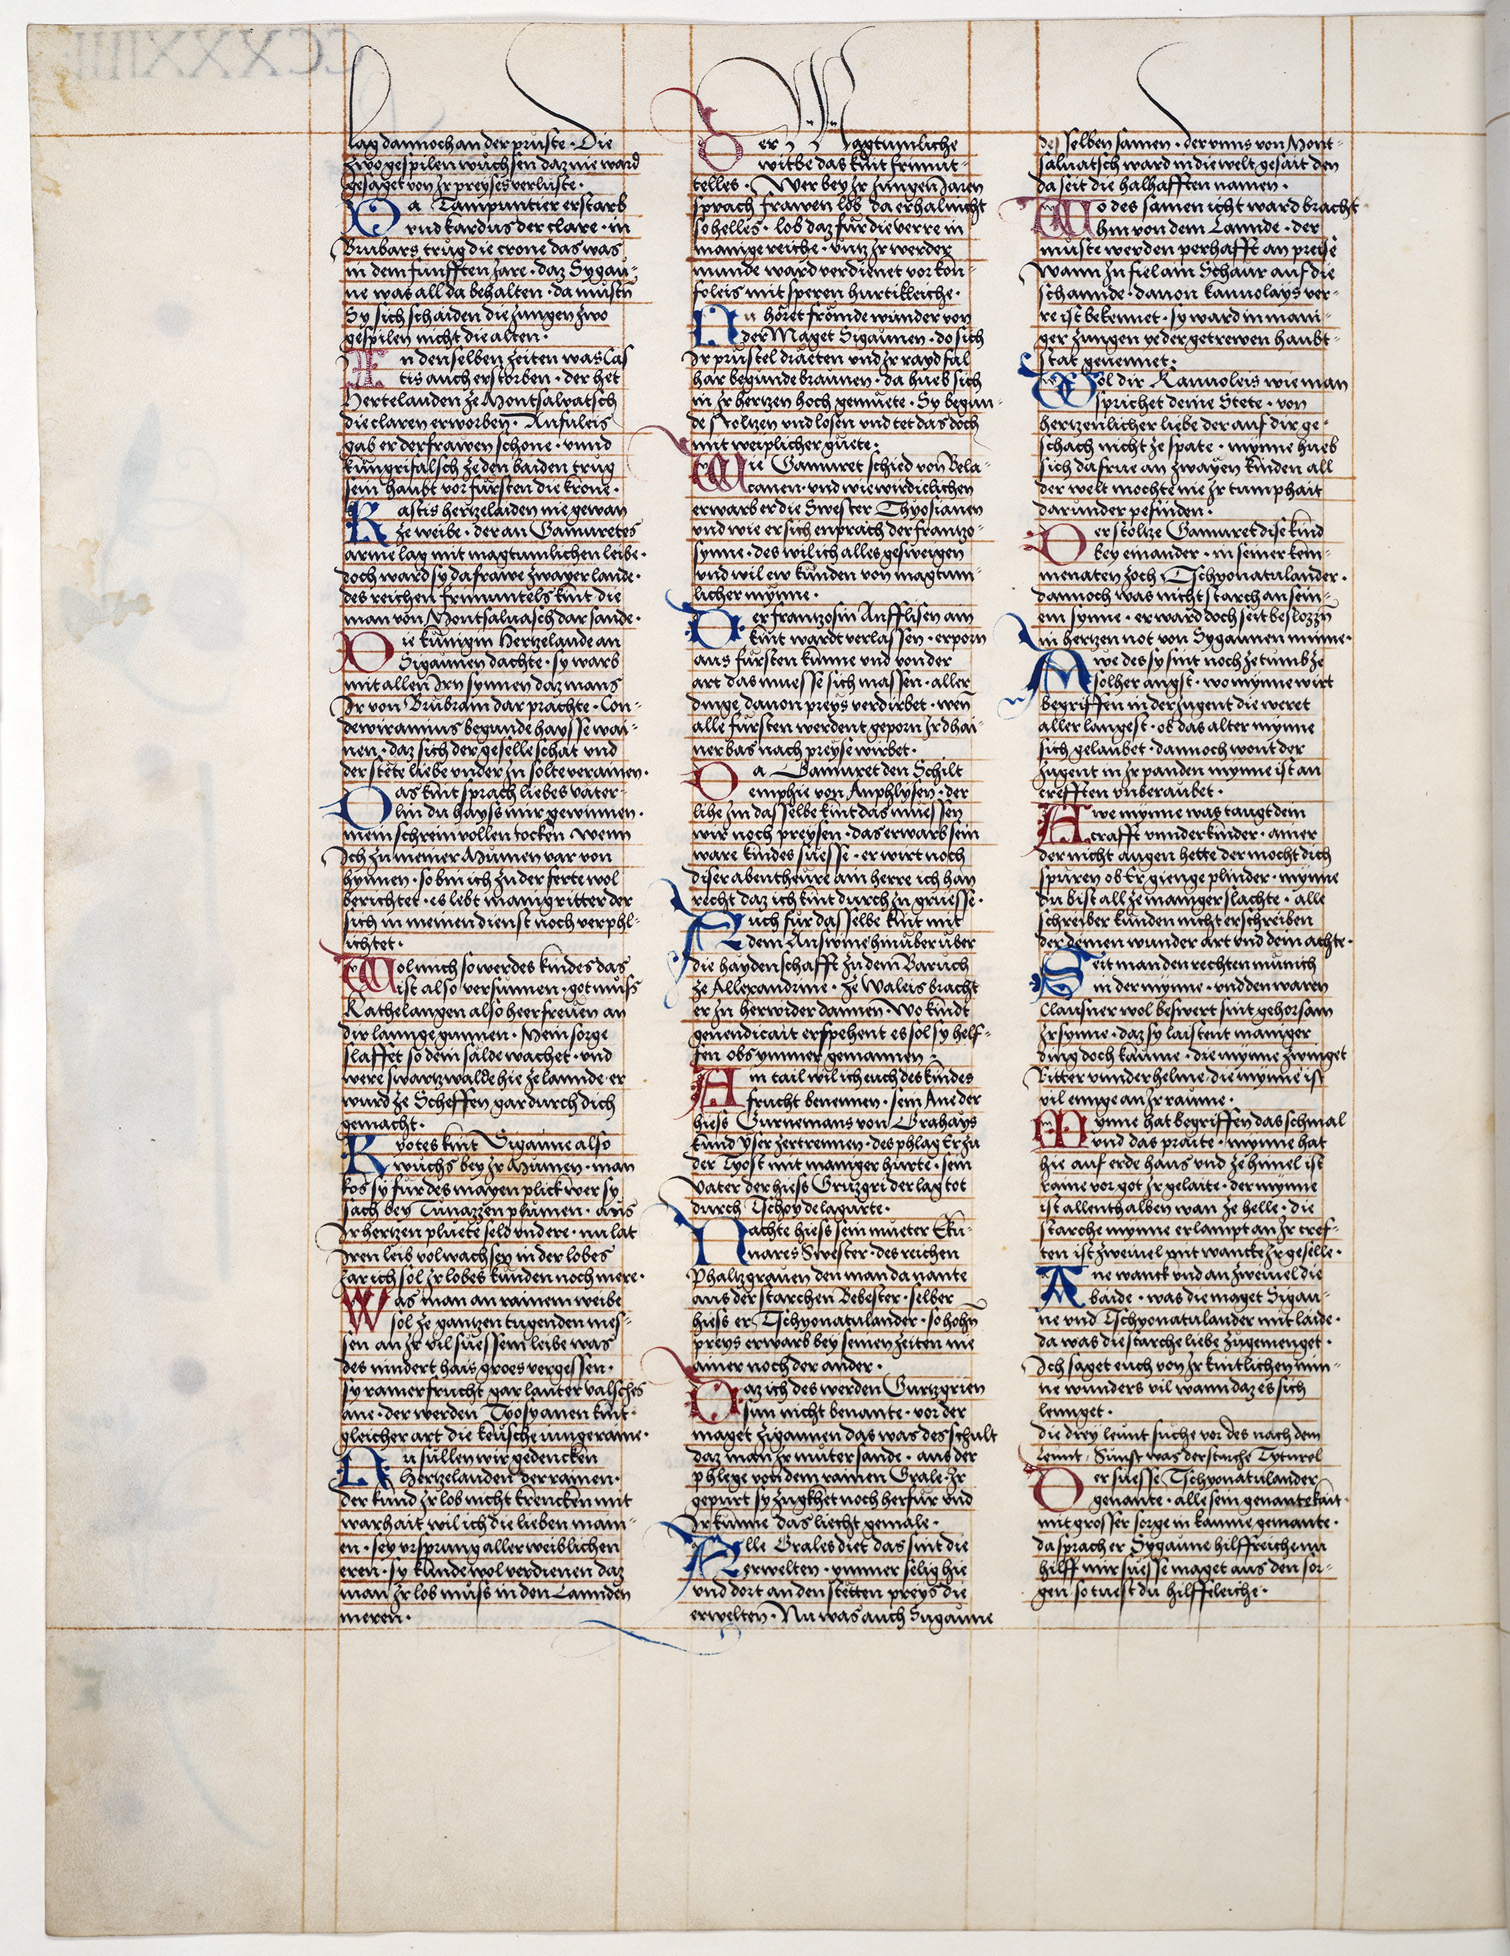 lag dannoch an der prüste · Die
zwo gespilen wuchsen daz nie ward
gesaget von Jr preyses verluste ·
Da Tampuntier erstarb
vnd kardus der clare · in
Brubars trug die crone das was
in dem funfften Jare · daz Sygau-
ne was all da behalten · da musten
Sy sich schaiden die jungen zwo
gespilen nicht die alten ·
In denselben zeiten was Cas
tis auch erstorben · der het
Hertzelauden ze Montsalvatsch
die claren erworben · Anfuleis
gab er der frawen schone · vnnd
kungrifalsch ze den baiden trug
sein haubt vor fürsten die krone ·
Kastis hertzelaiden nie gewan
ze weibe · der an Gamuretes
arme lag mit magtumlichen leibe ·
doch ward sy da frawe zwayer lande ·
des reichen frimutels kint die
man von Montsaluasch dar sande ·
Die künigin Hertzelaude an
Sigaunen dachte · sy warb
mit allen Jrn synnen daz mans
Jr von Brubram dar prachte · Con-
dewiramius begunde haysse wai-
nen · daz sich der geselleschafft vnd
der stete liebe vnder jn solte verainen ·
Das kint sprach liebes väter-
lin du hayss mir gewinnen ·
mein schrein vollen tocken wenn
Jch zu meiner Mumen var von
hynnen · so bin ich zu der ferte wol
berichtet · es lebt manig ritter der
sich in meinen dienst noch verphl-
ichtet ·
Wol mich so werdes kindes das
ist also versunnen · got muss
Kathelangen also heer frewen an
dir lannge gunnen · Mein sorge
slaffet so dein sälde wachet · vnd
were swartzwalde hie ze lannde · er
wurd ze Scheffen gar durch dich
gemacht ·
Kyotes kint Sigaune also
wuchs bey Jr Mumen · man
kos sy für des mayen plick wer sy
sach bey Tunazzen plumen · aus
Jr hertzen pluete seld vnd ere · nu lat
Jren leib volwachsen in der lobes
Jar ich sol Jr lobes kunden noch mere ·
Was man an rainem weibe
sol ze gantzen tugenden mes-
sen an Jr vil suessem leibe was
des nindert hars groes vergessen ·
sy rainer frucht gar lauter valsches
ane · der werden Tyosyanen kint ·
gleicher art die keusche junge raine ·
Nu süllen wir gedencken
Hertzelauden der rainen ·
der kund Jr lob nicht krencken mit
warhait wil ich die lieben main-
en · sey vrsprung aller weiblichen
eren · sy kunde wol verdienen daz
man Jr lob muss in den Lannden
meren ·
Der Magtumliche
witbe das kint frimut-
telles · Wer bey Jr jungen Jaren
sprach frawen lob da erhal nicht
so helles · lob daz fur die verre in
manige reiche · vntz Jr werder
mynne ward verdienet vor kon-
foleis mit speren hurtikleiche ·
Nu höret frömde wunder von
der Maget Sigaunen · do sich
Jr prüstel draeten vnd Jr rayd fal
har begunde braunen · da hueb sich
in Jr hertzen hoch gemüete · Sy begun-
de stoltzen vnd losen vnd tet das doch
mit weyplicher guete ·
Wie Gamuret schied von Bela-
canen · vnd wie wirdiclichen
erwarb er die Swester Thyosianen
vnd wie er sich enprach der frantzo-
synne · des wil ich alles gesweigen
vnd wil ew kunden von magtum-
licher mynne ·
Der franzosin Anfflisen ain
kint wardt verlassen · erporn
aus fürsten kunne vnd von der
art das muesse sich massen · aller
dinge dauon preys verdirbet · wenn
alle fürsten werdent geporn Jr dhai-
ner bas nach preyse wirbet ·
Da Gamuret den Schilt
emphie von Anphlysen · der
lihe Jm dasselbe kint das muessen
wir noch preysen · das erwarb sein
ware kindes suesse · er wirt noch
diser abentheure ain herre ich han
recht daz ich kint durch jn gruesse ·
Auch fur dasselbe kint mit
dem Answine hinuber uber
die haydenschafft zu dem Baruch
ze Allexandrine · ze Waleis bracht
er jn herwider dannen · Wo kindt
genendicait erspehent es sol sy helf-
fen obs ymmer gemannen ·
Ain tail wil ich euch des kindes
frucht benennen · sein Ane der
hiess Gurnemans von Grahars
kund yser zertrennen · des phlag Er zu
der Tyost mit maniger hurte · sein
Vater der hiess Gruzgri der lag tot
durch Tschoydelagurte ·
Machte hiess sein mueter Eku-
nares Swester · des reichen
Phaltzgrauen den man da nante
aus der starchen Bebester · selber
hiess er Tschyonatulander · so hohn
preys erwarb bey seinen zeiten nie
ainer noch der ander ·
Daz ich des werden Gurtzgrien
sun nicht benante · vor der
maget Zigaunen das was des schult
daz man Jr muter sande · aus der
phlege von dem rainen Grale · Jr
gepurt sy zugkhet noch herfur vnd
Jr kunne das liecht gemale ·
Alle Grales diet das sint die
erwelten · ymmer selig hie
vnd dort an den stetten preys die
erwelten · Nu was auch Sugaune
desselben samen · der vnns von Mont-
saluatsch ward in die welt gesait den
da seit die halhafften namen ·
Wo des samen icht ward bracht
hin von dem Lannde · der
muste werden perhafft an preise
Wann Jn fiel ain Schaur auf die
schannde · dauon kanuolays ver-
re ist bekennet · sy ward in mani-
ger zungen ye der getrewen haubt-
stat genennet ·
Wol dir Kanuoleis wie man
sprichet deine Stete · von
hertzenlicher liebe der auf dir ge-
schach nicht ze spate · mynne hueb
sich da frue an zwayen kinden all
der welt mochte nie Jr tumphait
darunder pefinden ·
Der stoltze Gamuret dise kind
bey einander · in seiner kom-
menaten zoch Tschyonatulander ·
dannoch was nicht starch an sein-
em synne · er ward doch seit beslozzn
in hertzen not von Sygaunen minne ·
Awe des sy sint noch ze tumb ze
solher angst · wo mynne wirt
begriffen in der jugent die weret
aller langest · ob das alter mynne
sich gelaubet · dannoch wont der
jugent in Jr panden mynne ist an
crefften vnberaubet ·
Awe mynne was taugt dein
crafft vnnder kinder · ainer
der nicht augen hette der mocht dich
spüren ob Er gienge plinder · mynne
du bist all ze maniger slachte · alle
schreiber kunden nicht erschreiben
der deinen wunder art vnd dein achte ·
Seit man den rechten münich
in der mynne · vnd den waren
Clausner wol beswert sint gehorsam
Jr synne · daz sy laistent maniger
ding doch kaume · die mynne zwinget
Ritter vnnder helme · die mynne ist
vil ennge an Jr raume ·
Mynne hat begriffen das schmal
vnd das praite · mynne hat
hie auf erde haus vnd ze himel ist
raine vor got Jr gelaite · der mynne
ist allenthalben wan ze helle · die
starche mynne erlampt an Jr cref-
ten ist zweiuel mit wancke Jr geselle ·
Ane wanck vnd an zweiuel die
baide · was die maget Sigau-
ne vnd Tschyonatulander mit laide ·
da was die starche liebe zugemenget ·
Jch saget euch von Jr kintlichen min-
ne wunders vil wann daz es sich
lennget ·
Der suesse Tschyonatulander
genante · alle sein genante kaut ·
mit grosser sorge in kaume gemante ·
da sprach er Sygaune hilffreiche nu
hilff mir suesse maget aus den sor-
gen so tuest du hilffeleiche ·